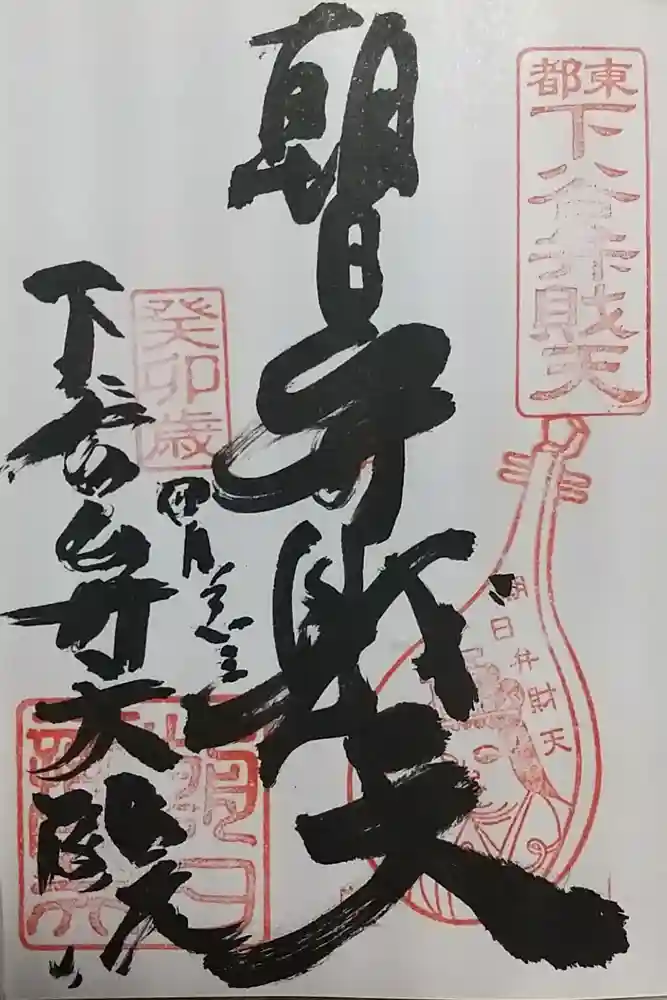 東都
下谷弁財天
朝日弁財天
朝日弁財天
癸卯歳
四月
下谷弁天院
朝日